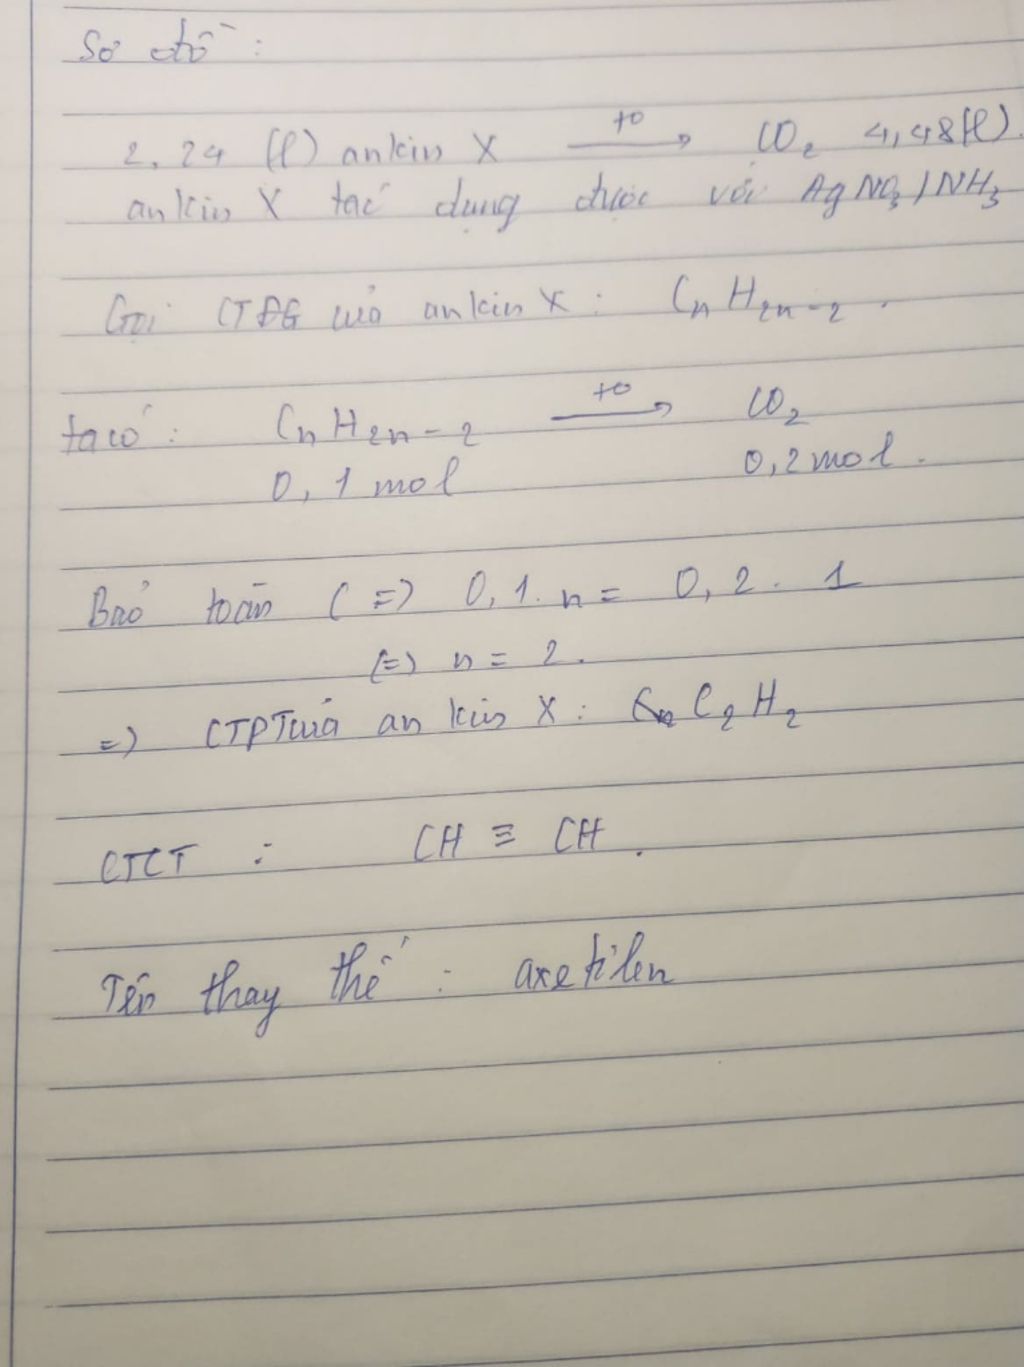 Sơ đồ :
2,24 (l) ankin X t° → CO2 4,48(l)
ankin X tác dụng được với AgNO3/NH3
Gọi CTĐG của ankin X : CnH2n-2 .
ta có : CnH2n-2 t° → CO2
0,1 mol 0,2 mol .
Bảo toàn C => 0,1. n = 0,2. 1
(=) n = 2 .
=) CTPT của ankin X : C2H2
CTCT : CH ≡ CH .
Tên thay thế : axetilen